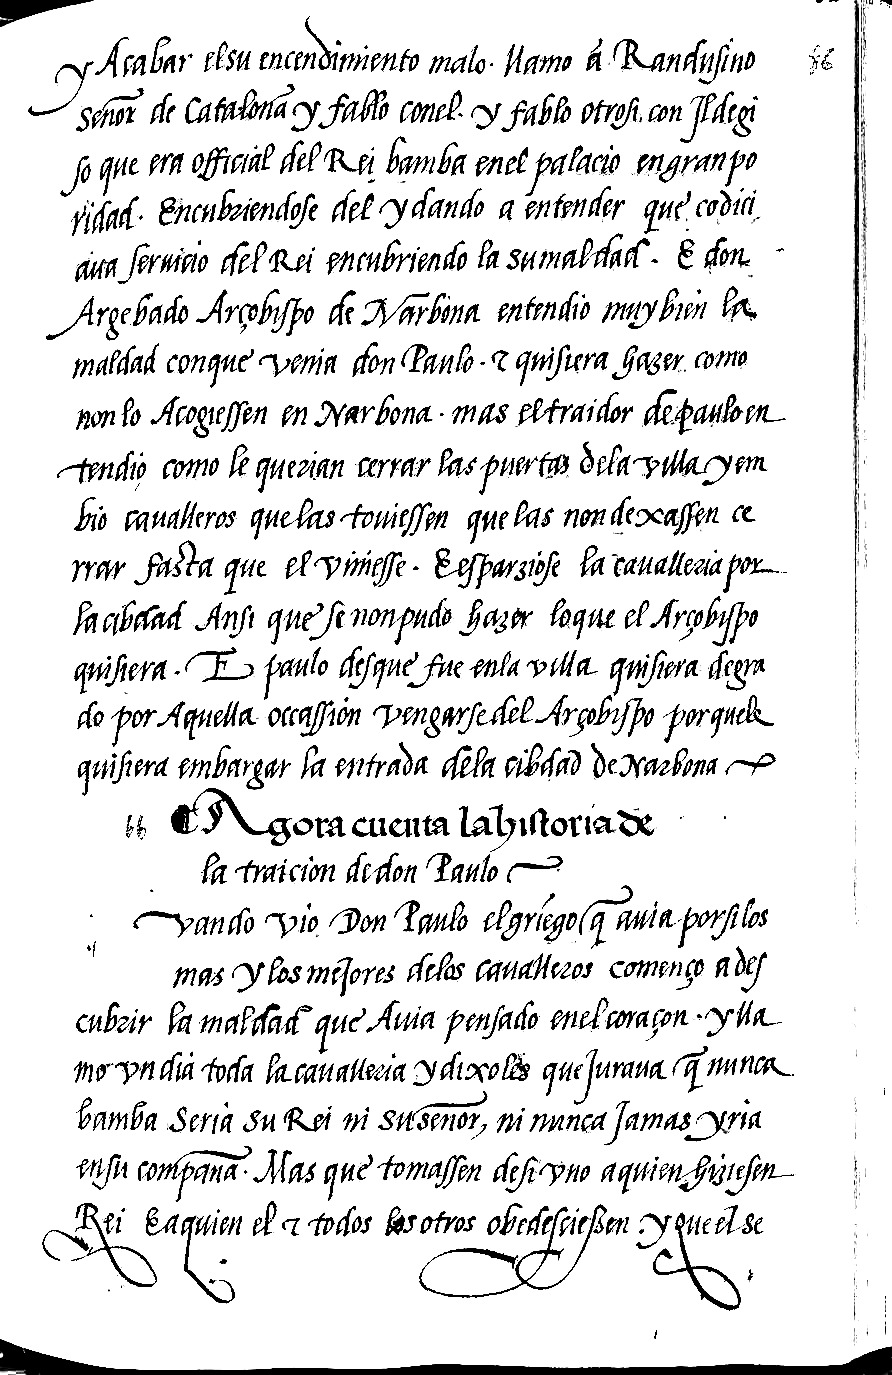 y Acabar el su encendimiento malo. llamo á Randusino
86
señor de Cataloña y fablo conel. y fablo otrosi. con Jldegi
so que era official del Rei bamba enel palacio engran po
ridad. Encubriendose del y dando a entender que codici
aua seruicio del Rei encubriendo la su maldad. E don
Argebado Arçobispo de Narbona entendio muy bien la
maldad conque venia don Paulo. & quisiera hazer como
non lo Acogiessen en Narbona. mas el traidor de paulo en
tendio como le querian cerrar las puertas dela villa y em
bio caualleros que las touiessen que las non dexassen ce
rrar fasta que el viniesse. E esparziose la caualleria por
la cibdad Ansi que se non pudo hazer lo que el Arçobispo
quisiera. E paulo desque fue enla villa quisiera degra
do por Aquella occassion vengarse del Arçobispo porquele
quisiera embargar la entrada dela cibdad de Narbona
66 Agora cuenta la historia de
la traicion de don Paulo
uando vio Don Paulo el griego q̃ auia por si los
mas y los mejores delos caualleros començo a des
cubrir la maldad que Auia pensado enel coraçon. y lla
mo vn dia toda la caualleria y dixoles que Juraua q̃ nunca
bamba Seria su Rei ni su señor, ni nunca Jamas yria
en su compaña. Mas que tomassen desi vno a quien hiziesen
Rei E a quien el & todos los otros obedesciessen y que el se